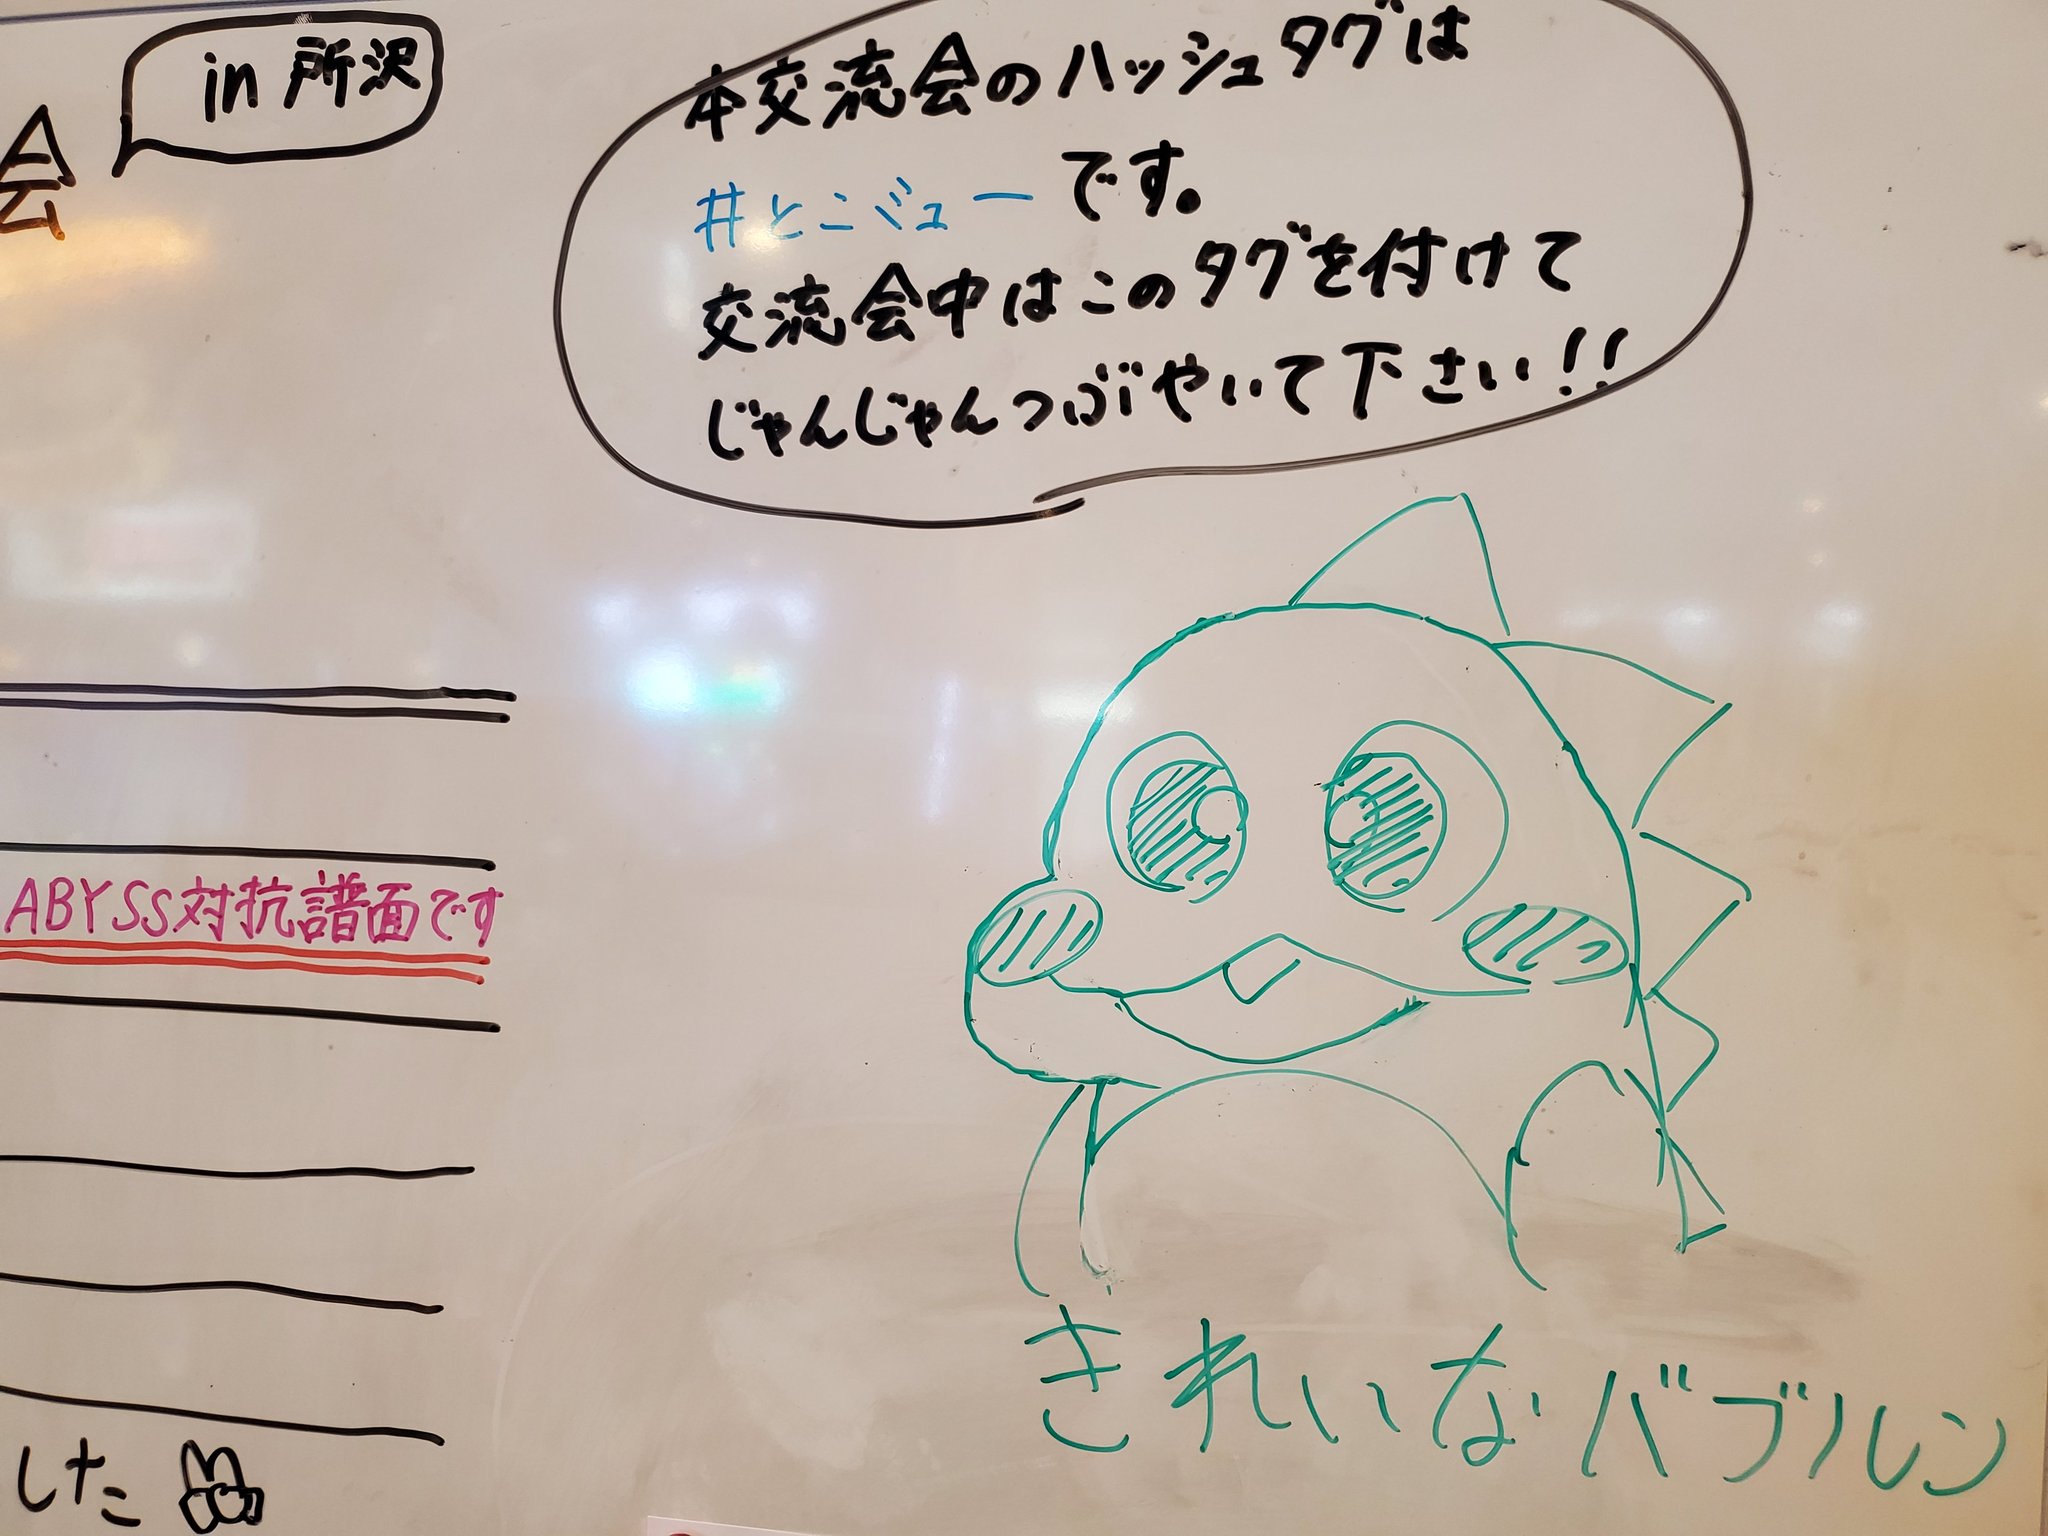 会
in 所沢
本交流会のハッシュタグは
#とこバュー です。
交流会中はこのタグを付けて
じゃんじゃんつぶやいて下さい!!
ABYSS対抗譜面です
した
きれいなバブルン